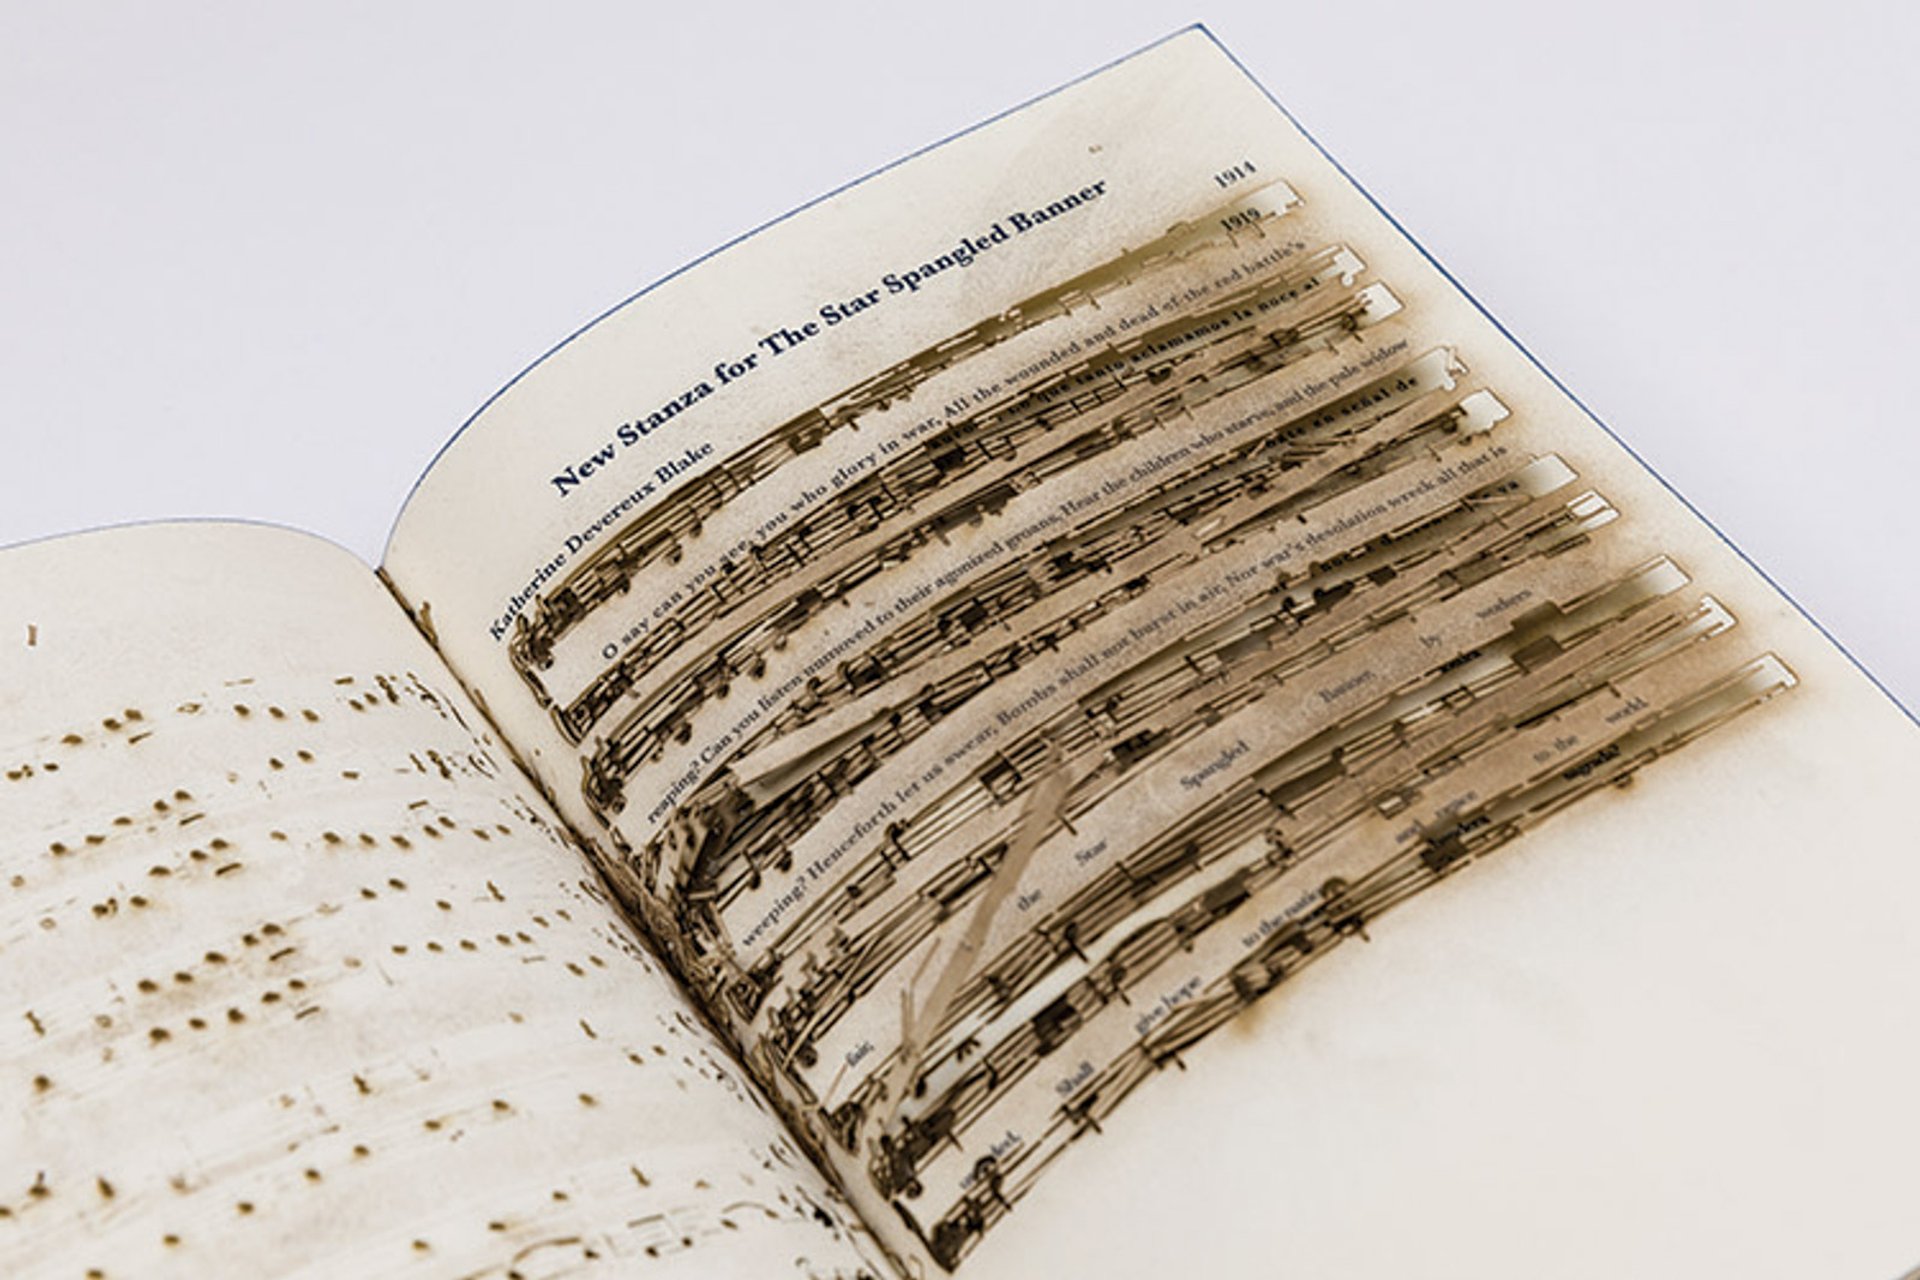 1914
New Stanza for The Star Spangled Banner
1919
Katherine Devereux Blake
O say can you see, you who glory in war, All the wounded and dead of the red battle's
que tanto aclamamos la noce al
reaping? Can you listen unmoved to their agonized groans, Hear the children who starve, and the pale widow
en señal de
weeping? Henceforth let us swear, Bombs shall not burst in air, Nor war's desolation wreck all that is
va
fair, the Star Spangled Banner by workers
Shall give hope to the nations and peace to the world.